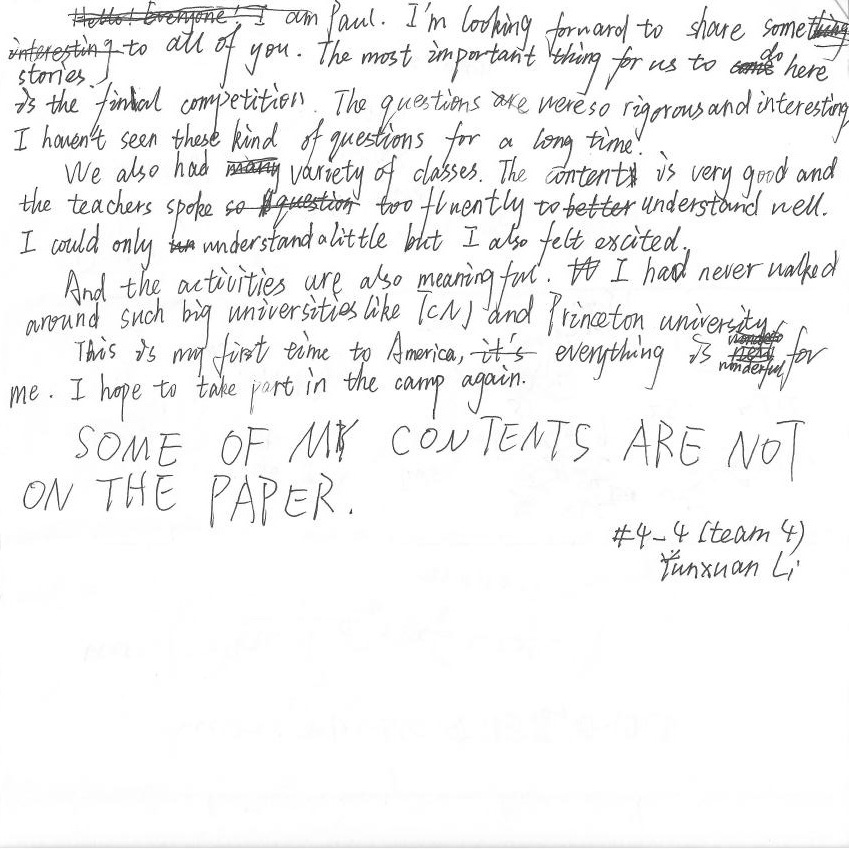 Hello! Everyone! I am Paul. I'm looking forward to share something
interesting to all of you. The most important thing for us to come do here
stories
is the final competition. The questions are were so rigorous and interesting
I haven't seen these kind of questions for a long time.
We also had many variety of classes. The content is very good and
the teachers spoke so question too fluently to better understand well.
I could only un understand a little but I also felt excited.
And the activities are also meaningful. I had never walked
around such big universities like TCNJ and Princeton university
This is my first time to America, it's everything is wonderful, for
me. I hope to take part in the camp again.
SOME OF MY CONTENTS ARE NOT
ON THE PAPER.
#4-4 (team 4)
Yunxuan Li